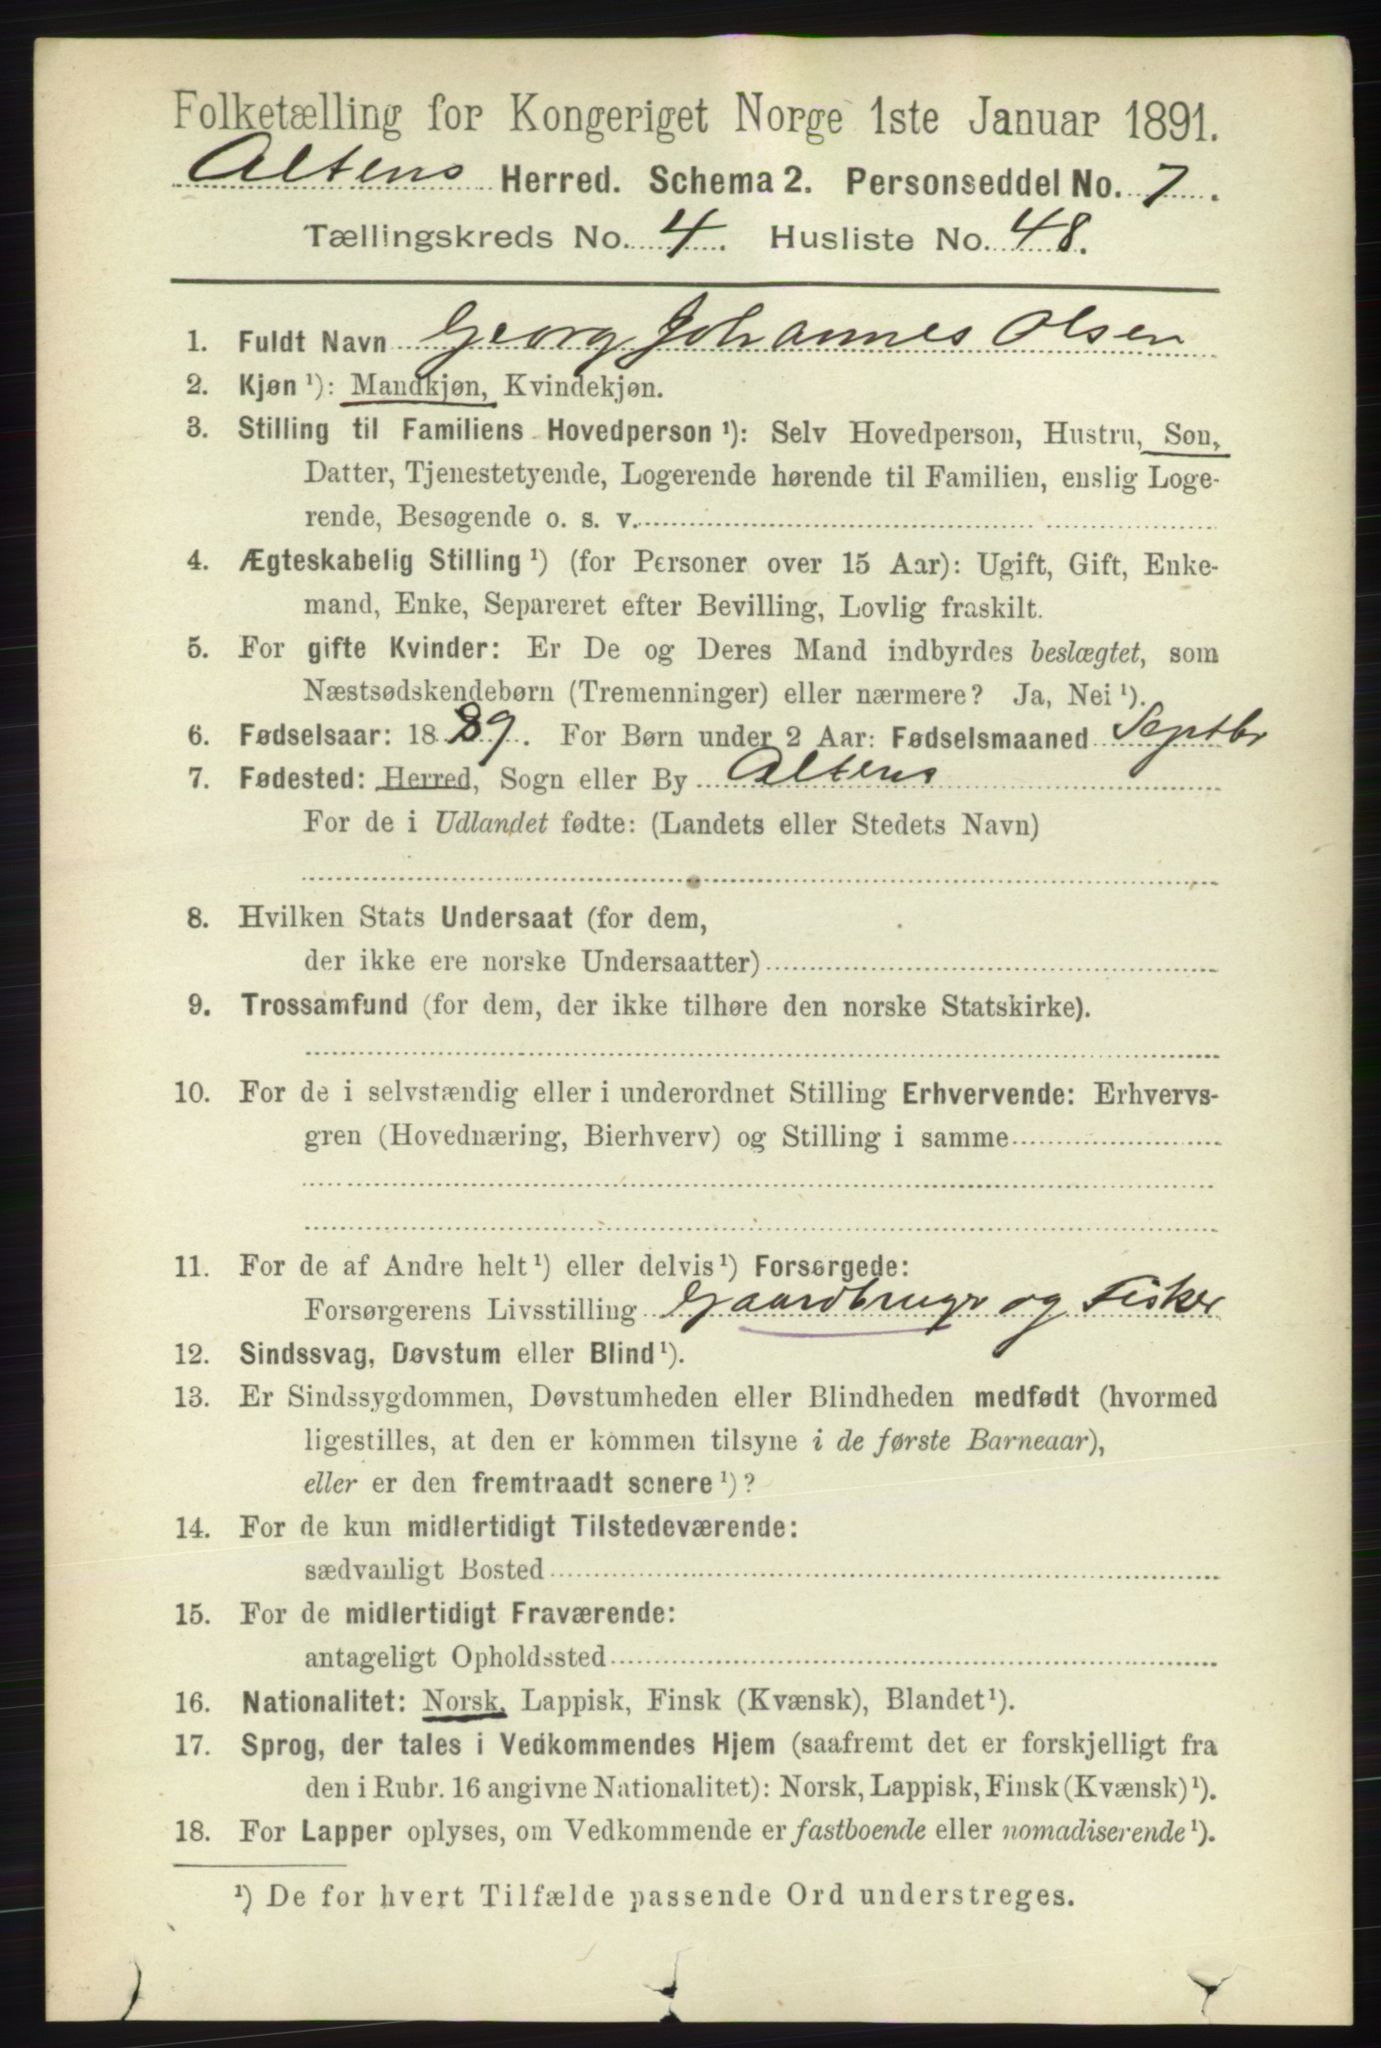 Folketælling for Kongeriget Norge 1ste Januar 1891.
Altens Herred. Schema 2. Personseddel No. 7.
Tællingskreds No. 4. Husliste No. 48.
1. Fuldt Navn Georg Johannes Olsen
2. Kjøn ¹): Mandkjøn, Kvindekjøn.
3. Stilling til Familiens Hovedperson ¹): Selv Hovedperson, Hustru, Søn,
Datter, Tjenestetyende, Logerende hørende til Familien, enslig Loge-
rende, Besøgende o. s. v.
4. Ægteskabelig Stilling ¹) (for Personer over 15 Aar): Ugift, Gift, Enke-
mand, Enke, Separeret efter Bevilling, Lovlig fraskilt.
5. For gifte Kvinder: Er De og Deres Mand indbyrdes beslægtet, som
Næstsødskendebørn (Tremenninger) eller nærmere? Ja, Nei ¹).
6. Fødselsaar: 1889. For Børn under 2 Aar: Fødselsmaaned Septbr
7. Fødested: Herred, Sogn eller By Altens
For de i Udlandet fødte: (Landets eller Stedets Navn)
8. Hvilken Stats Undersaat (for dem,
der ikke ere norske Undersaatter)
9. Trossamfund (for dem, der ikke tilhøre den norske Statskirke).
10. For de i selvstændig eller i underordnet Stilling Erhvervende: Erhvervs-
gren (Hovednæring, Bierhverv) og Stilling i samme
11. For de af Andre helt ¹) eller delvis ¹) Forsørgede:
Forsørgerens Livsstilling Gaardbruger og Fisker
12. Sindssvag, Døvstum eller Blind ¹).
13. Er Sindssygdommen, Døvstumheden eller Blindheden medfødt (hvormed
ligestilles, at den er kommen tilsyne i de første Barneaar),
eller er den fremtraadt senere ¹)?
14. For de kun midlertidigt Tilstedeværende:
sædvanligt Bosted
15. For de midlertidigt Fraværende:
antageligt Opholdssted
16. Nationalitet: Norsk, Lappisk, Finsk (Kvænsk), Blandet ¹).
17. Sprog, der tales i Vedkommendes Hjem (saafremt det er forskjelligt fra
den i Rubr. 16 angivne Nationalitet): Norsk, Lappisk, Finsk (Kvænsk) ¹).
18. For Lapper oplyses, om Vedkommende er fastboende eller nomadiserende ¹).
¹) De for hvert Tilfælde passende Ord understreges.